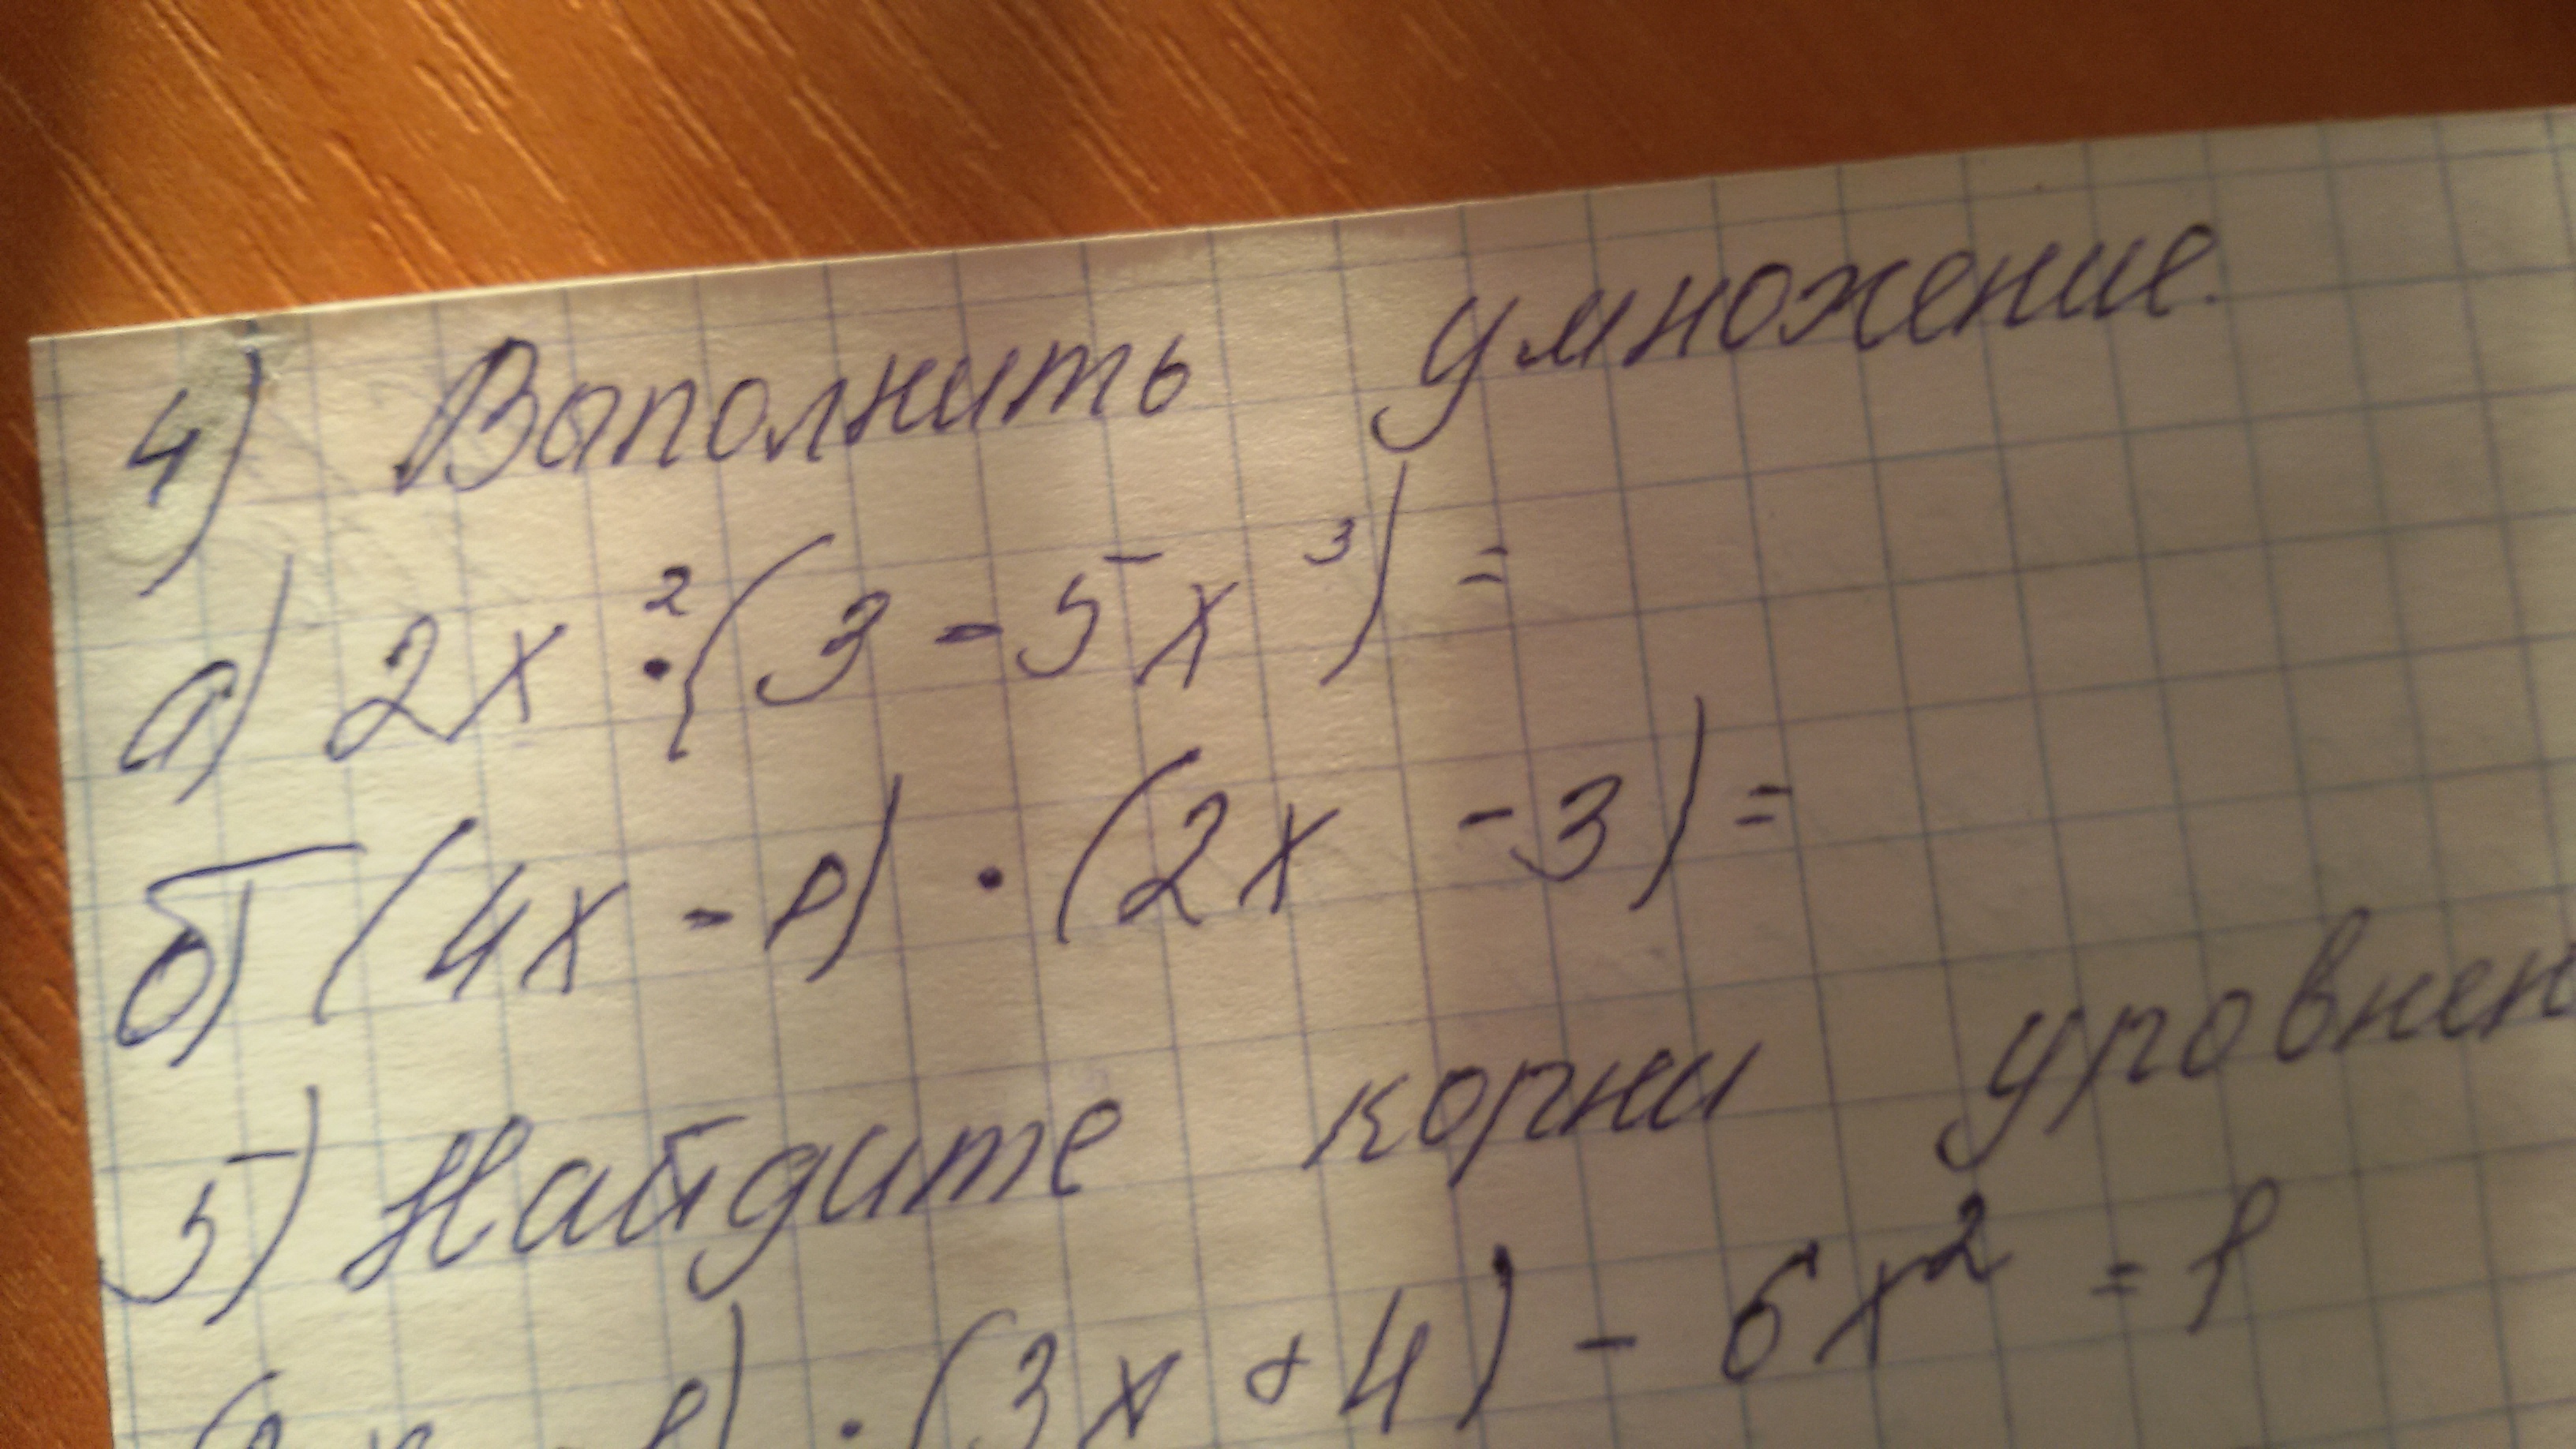 4) Вополнить умножение.
а) 2x²·(3-5x³)=
б) (4x-1)·(2x-3)=
5) Найдите корни уровнен
1)·(3x+4)-6x²=1